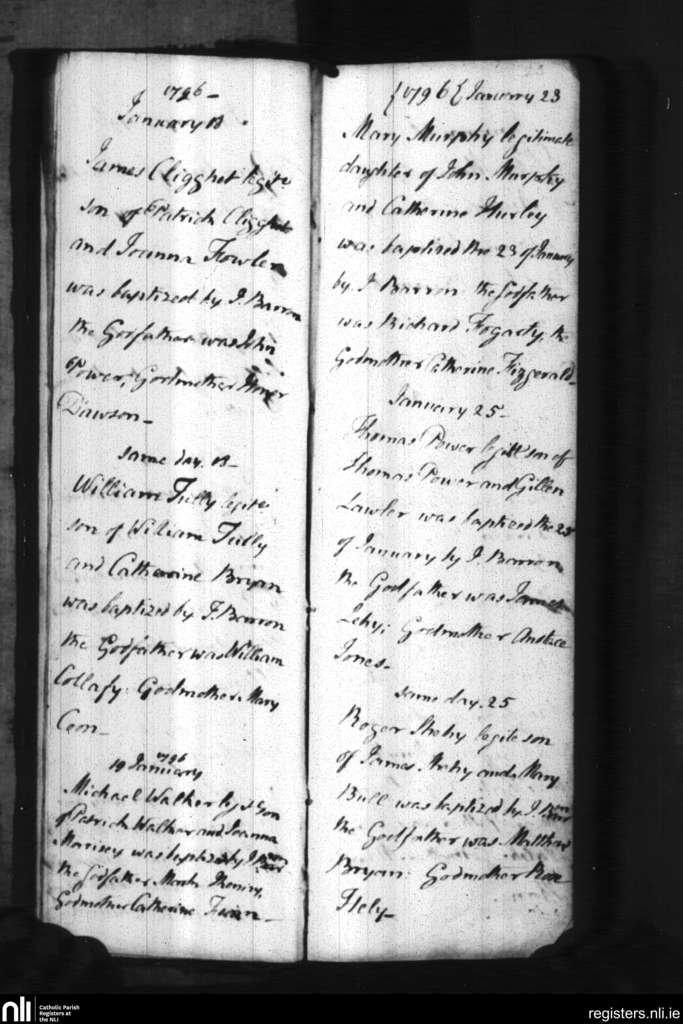 1796 -
January 18
James Cligghet legite
son of Patrick Cligghet
and Joanna Fowler
was baptized by J. Barron
the Godfather was John
Power, Godmother
Dawson -
same day. 18 -
William Tully legite
son of William Tully
and Catherine Bryan
was baptized by J. Barron
the Godfather was William
Collafy: Godmother Mary
Ceon -
1796
19 January
Michael Walker Son
of Patrick Walker and Joanna
Morrisey was baptized by J
the Godfather
Godmother Catherine
{1796{ January 23
Mary Murphy legitimate
daughter of John Murphy
and Catherine Hurley
was baptised the 23 of January
by J Barron the Godfather
was Richard Fogarty, the
Godmother Catherine Fizgerald -
January 25 -
Thomas Power legitt son of
Thomas Power and Gillen
Lawler was baptized the 25
of January by J. Barron
the Godfather was James
Lehy; Godmother Anstace
Jones -
same day. 25
Roger Shehy legite son
of James Shehy and Mary
Bull was baptized by J.
the Godfather was Matthew
Bryan: Godmother
Hely -
nli
Catholic Parish
Registers at
the NLI
registers.nli.ie